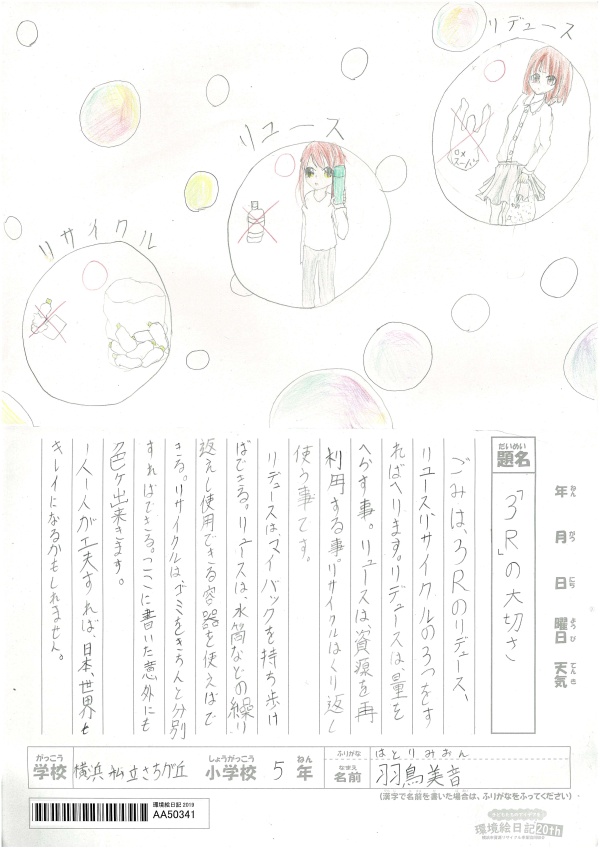 リデュース
リユース
リサイクル
ロメ
スーパー
だいめい
題名
「3R」の大切さ
年 ねん
月 がつ
日 にち
曜日 ようび
天気 てんき
ごみは、3Rのリデュース、
リユース、リサイクルの3つをす
ればへります。リデュースは、量を
へらす事。リユースは、資源を再
利用する事。リサイクルはくり返し
使う事です。
リデュースは、マイバックを持ち歩け
ばできる。リユースは、水筒などの繰り
返えし使用できる容器を使えばで
きる。リサイクルは、ゴミをきちんと分別
すればできる。ここに書いた意外にも
色々出来きます。
一人一人が工夫すれば、日本、世界も
キレイになるかもしれません。
がっこう
学校
横浜 私立さちが丘
しょうがっこう
小学校
5
ねん
年
ふりがな
はとりみおん
なまえ
名前
羽鳥美音
(漢字で名前を書いた場合は、ふりがなをふってください)
環境絵日記 2019
AA50341
環境絵日記20th